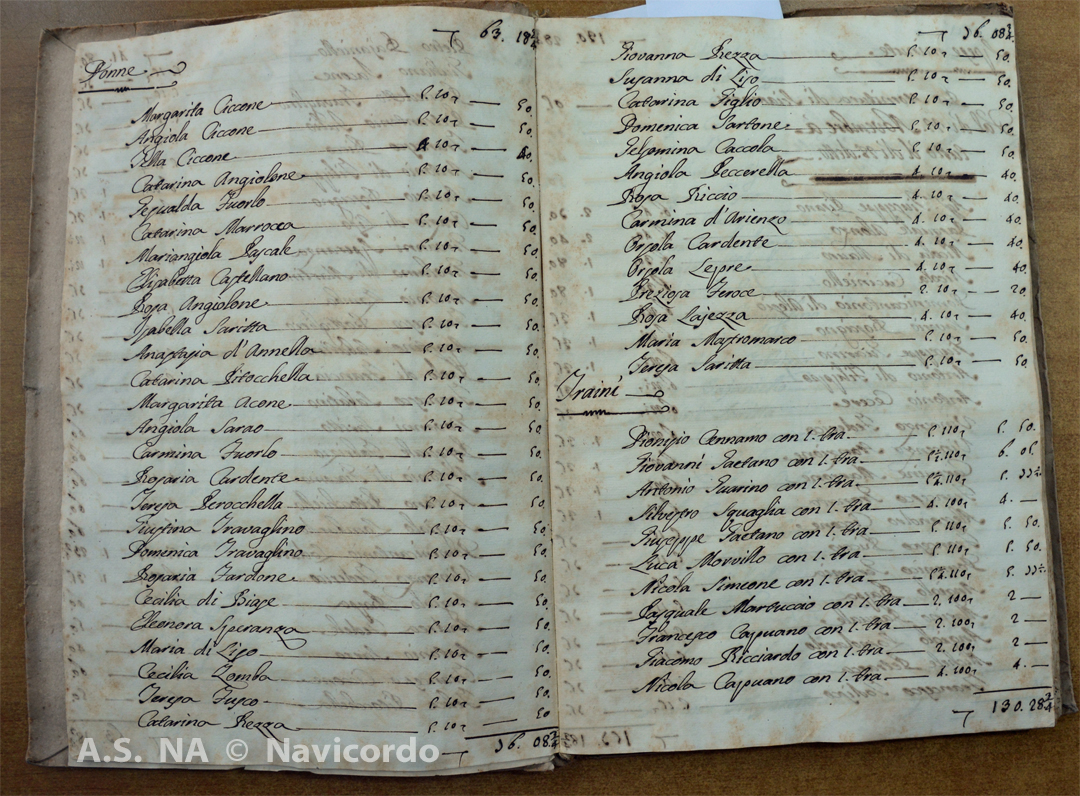 63. 18 3/4
Donne
Margarita Ciccone 5. 10 50.
Angiola Ciccone 5. 10 50.
Tella Ciccone 4 10 40.
Catarina Angiolone 5. 10 50.
Gesualda Fuorlo 5. 10 50.
Catarina Marrocca 5. 10 50.
Mariangiola Pascale 5. 10 50.
Elisabetta Castellano 5. 10 50.
Rosa Angiolone 5. 10 50.
Isabella Saritta 5. 10 50.
Anastasia d'Annella 5. 10 50.
Catarina Pitocchella 5. 10 50.
Margarita Acone 5. 10 50.
Angiola Sarao 5. 10 50.
Carmina Fuorlo 5. 10 50.
Rosaria Cardente 5. 10 50.
Teresa Perocchella 5. 10 50.
Giustina Travaglino 5. 10 50.
Domenica Travaglino 5. 10 50.
Rosaria Fardone 5. 10 50.
Cecilia di Biase 5. 10 50.
Eleonora Speranza 5. 10 50.
Maria di Liso 5. 10 50.
Cecilia Zomba 5. 10 50.
Teresa Fusco 5. 10 50.
Catarina Rezza 5. 10 50.
96. 08 3/4
96. 08 3/4
Giovanna Rezza 5. 10 50.
Susanna di Liso 5. 10 50.
Catarina Figlio 5. 10 50.
Domenica Sartone 5. 10 50.
Gelsomina Caccola 5. 10 50.
Angiola Peccerella 4. 10 40.
Rosa Riccio 4. 10 40.
Carmina d'Arienzo 4. 10 40.
Orsola Cardente 4. 10 40.
Orsola Lepre 4. 10 40.
Preziosa Feroce 2. 10 20.
Rosa Lajezza 4. 10 40.
Maria Mastromarco 5. 10 50.
Teresa Saritta 5. 10 50.
Traini
Dionisio Cennamo con 1. tra. 5. 110 5. 50.
Giovanni Gaetano con 1. tra. 5 1/2. 110 6. 05.
Antonio Guarino con 1. tra. 5 1/4. 110 5. 77 1/2
Silvestro Squaglia con 1. tra. 4. 100 4. —
Giuseppe Gaetano con 1. tra. 5. 110 5. 50.
Luca Morvillo con 1. tra. 5. 110 5. 50.
Nicola Simeone con 1. tra. 5 1/4. 110 5. 77 1/2
Pasquale Martuccio con 1. tra. 2. 100 2 —
Francesco Capuano con 1. tra. 2. 100 2 —
Giacomo Ricciardo con 1. tra. 2. 100 2 —
Nicola Capuano con 1. tra. 4. 100 4. —
130. 28 3/4
A.S. NA © Navicordo